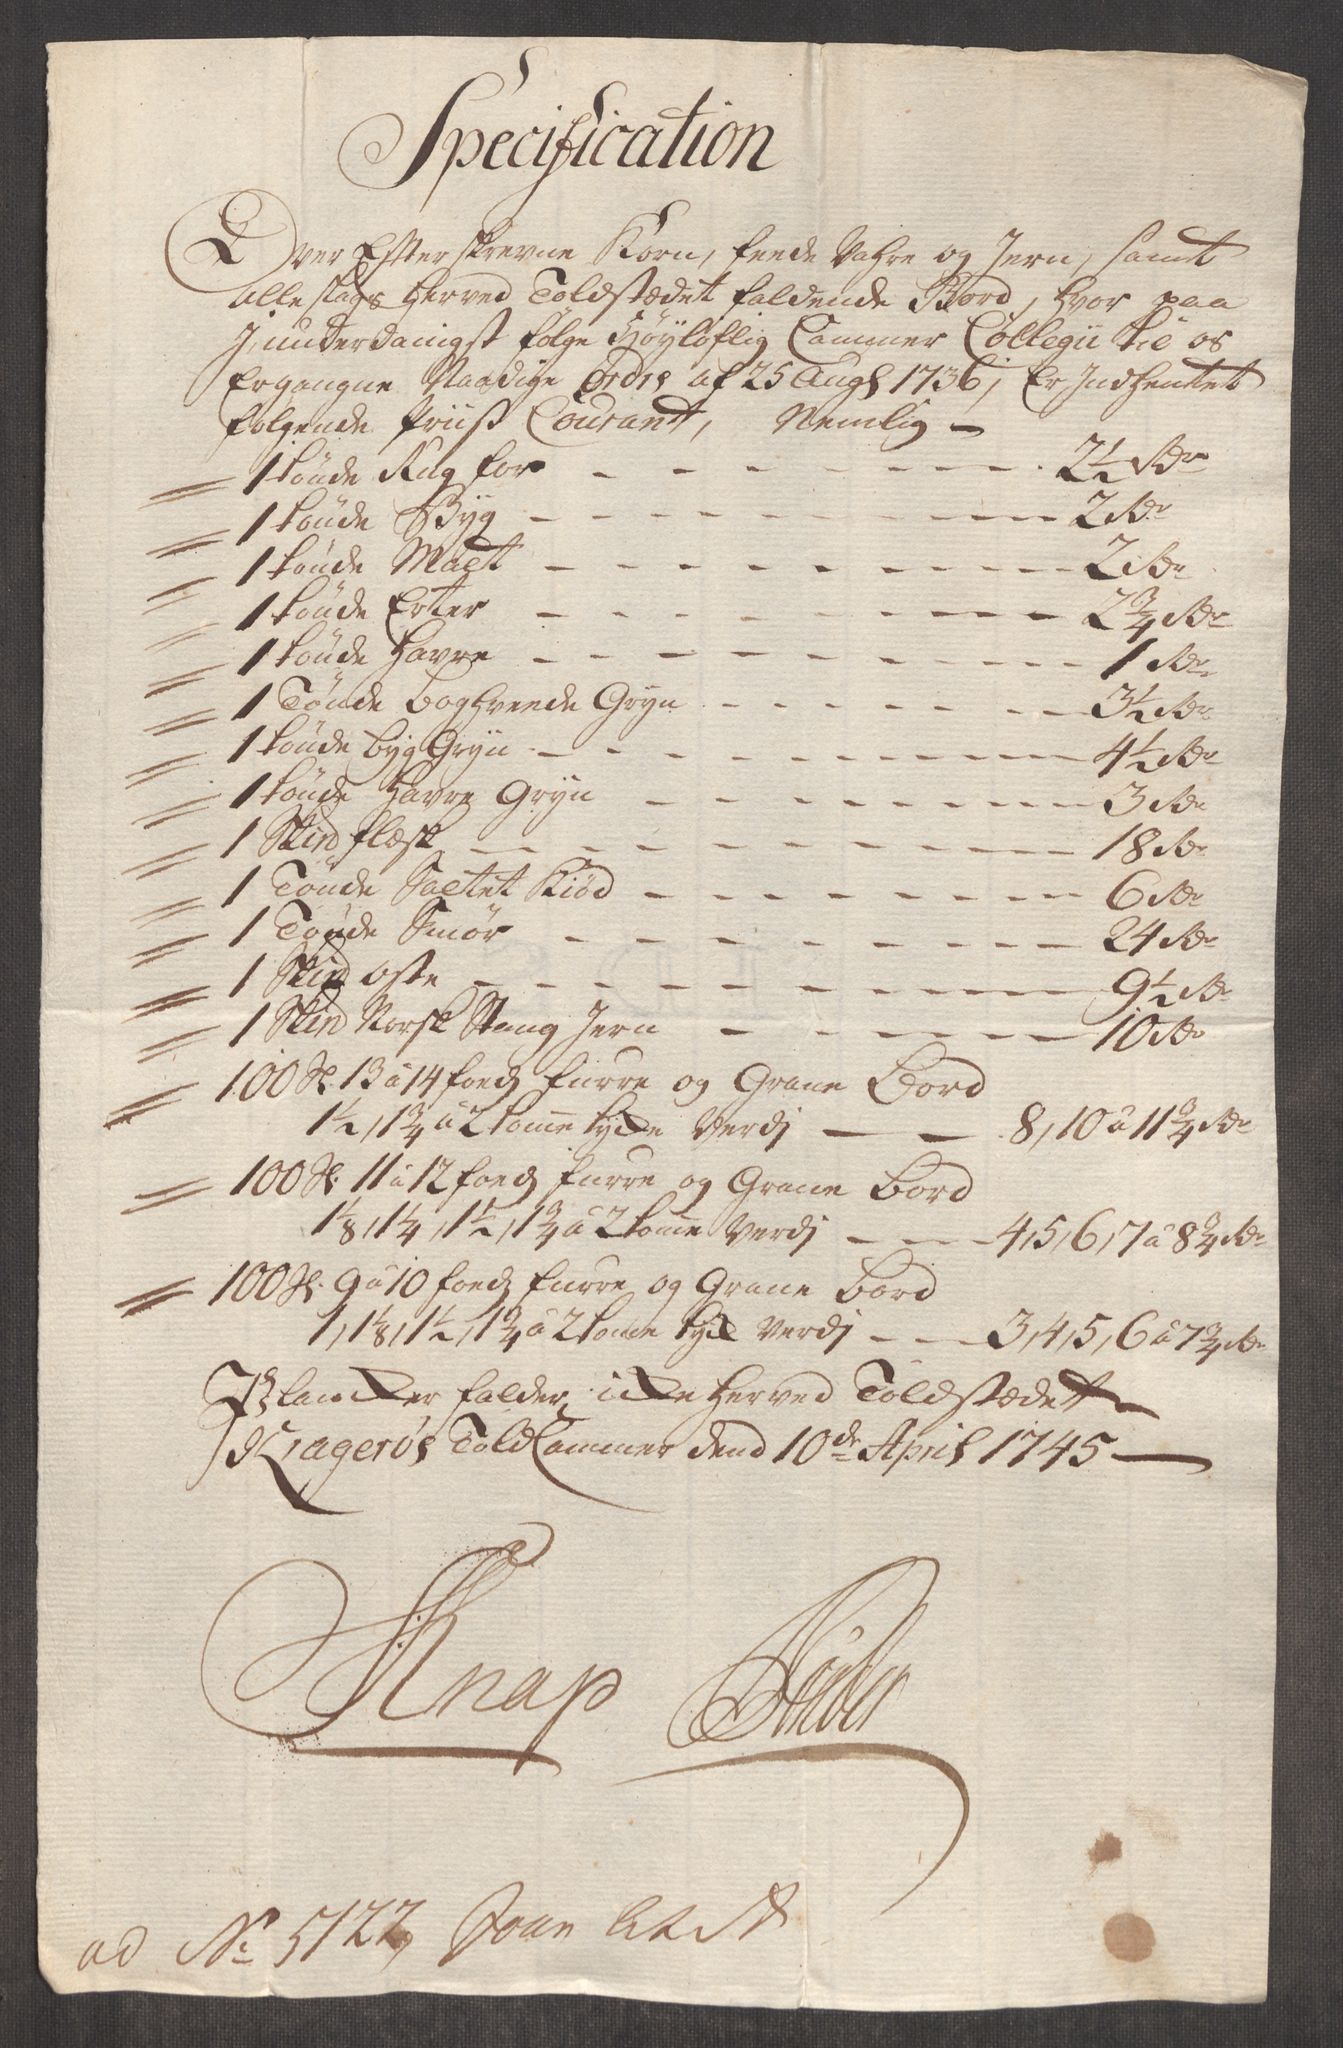 Specification
Over Efterskrevne Korn, feede Vahre og Jern, samt
alle slags herved Toldstædet faldende Bord, hvor paa
J underdanigst følge Høyloflig Cammer Collegii til os
Ergangne Naadige Ordre af 25 Augs 1736, Er Indhentet
følgende Priiss Courant, Nemlig -
1 tönde Rug for - - - 2 1/2 Rdr
1 tönde Byg - - - 2 Rdr
1 tönde Malt - - - 2 Rdr
1 tönde Erter - - - 2 3/4 Rdr
1 tönde Havre - - - 1 Rdr
1 Tönde Boghveede Gryn - - - 3 1/2 Rdr
1 tönde byg Gryn - - - 4 1/2 Rdr
1 tönde Havre Gryn - - - 3 Rdr
1 Skind flesk - - - 18 Rdr
1 Tönde Saltet Kiöd - - - 6 Rdr
1 Tönde Smör - - - 24 Rdr
1 Skind oste - - - 9 1/2 Rdr
1 Skind Norsk Stang Jern - - - 10 Rdr
100 St. 13 à 14 foeds furre og Grane Bord
1 1/2, 1 3/4 à 2 tomme tycke Verdj - - 8, 10 à 11 3/4 Rdr
100 St. 11 à 12 foeds furre og Grane Bord
1 1/8, 1 1/4, 1 1/2, 1 3/4 à 2 tomme Verdj - - 4, 5, 6, 7 à 8 3/4 Rdr
100 St. 9 à 10 foeds furre og Grane Bord
1, 1 1/8, 1 1/2, 1 3/4 à 2 tomme tyck Verdj - - 3, 4, 5, 6 à 7 3/4 Rdr
Plancker falder icke herved Toldstædet
Kragerös Told Cammer dend 10de April 1745 -
Knap
ad No 5122,